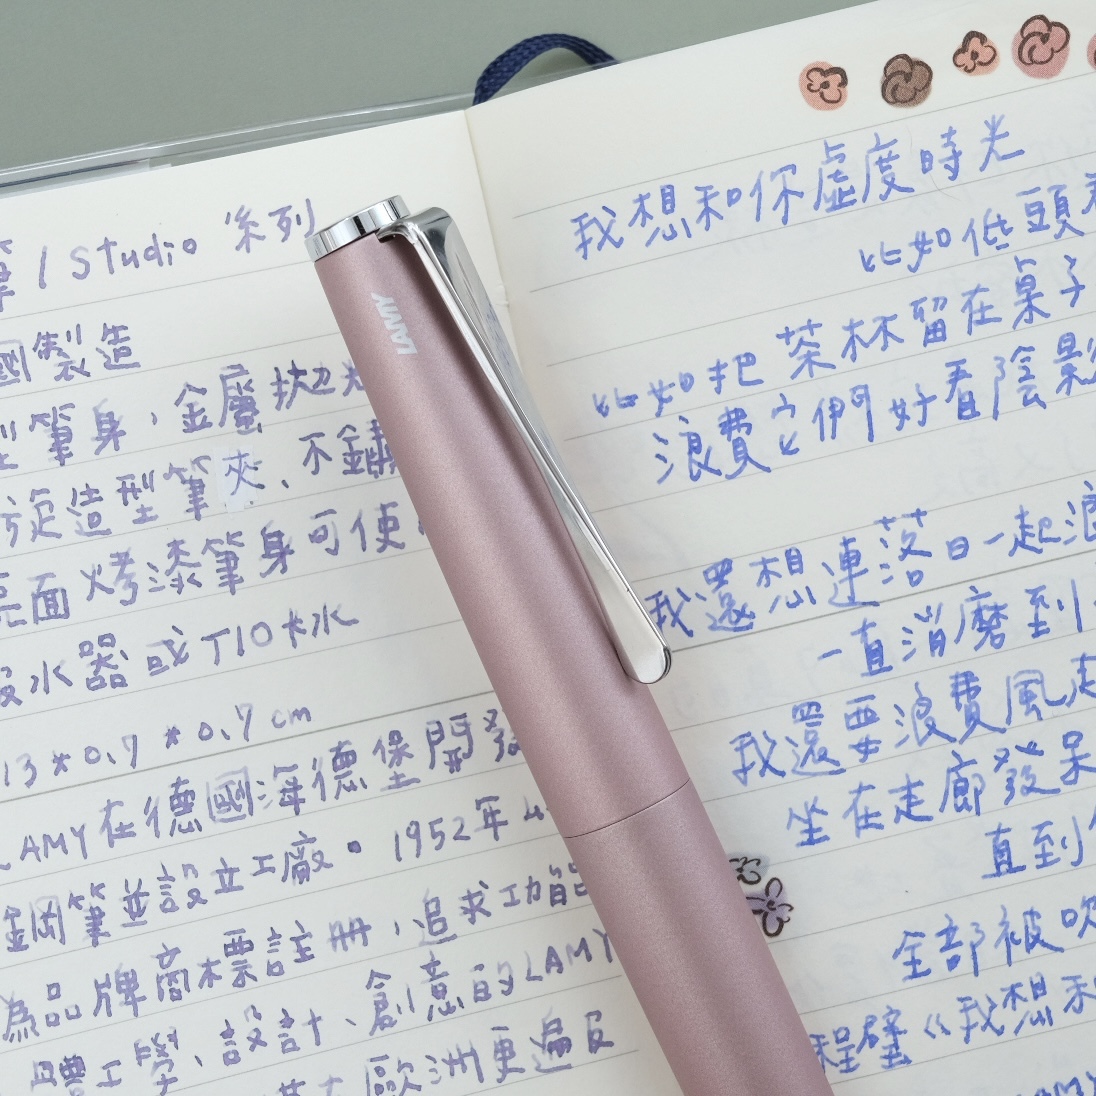 筆 / Studio 系列
國製造
型筆身，金屬拋
旋造型筆夾、不鏽鋼
亮面烤漆筆身可使
吸水器或T10卡水
13*0.7*0.7cm
LAMY在德國海德堡開發
鋼筆並設立工廠。1952年以
為品牌商標註冊，追求功能
體工學、設計、創意的LAMY
歐洲更遍及
LAMY
我想和你虛度時光
比如低頭
比如把茶杯留在桌子
浪費它們好看陰影
我還想連落日一起浪
一直消磨到
我還要浪費風起
坐在走廊發呆
直到
全部被吹
程璧《我想和